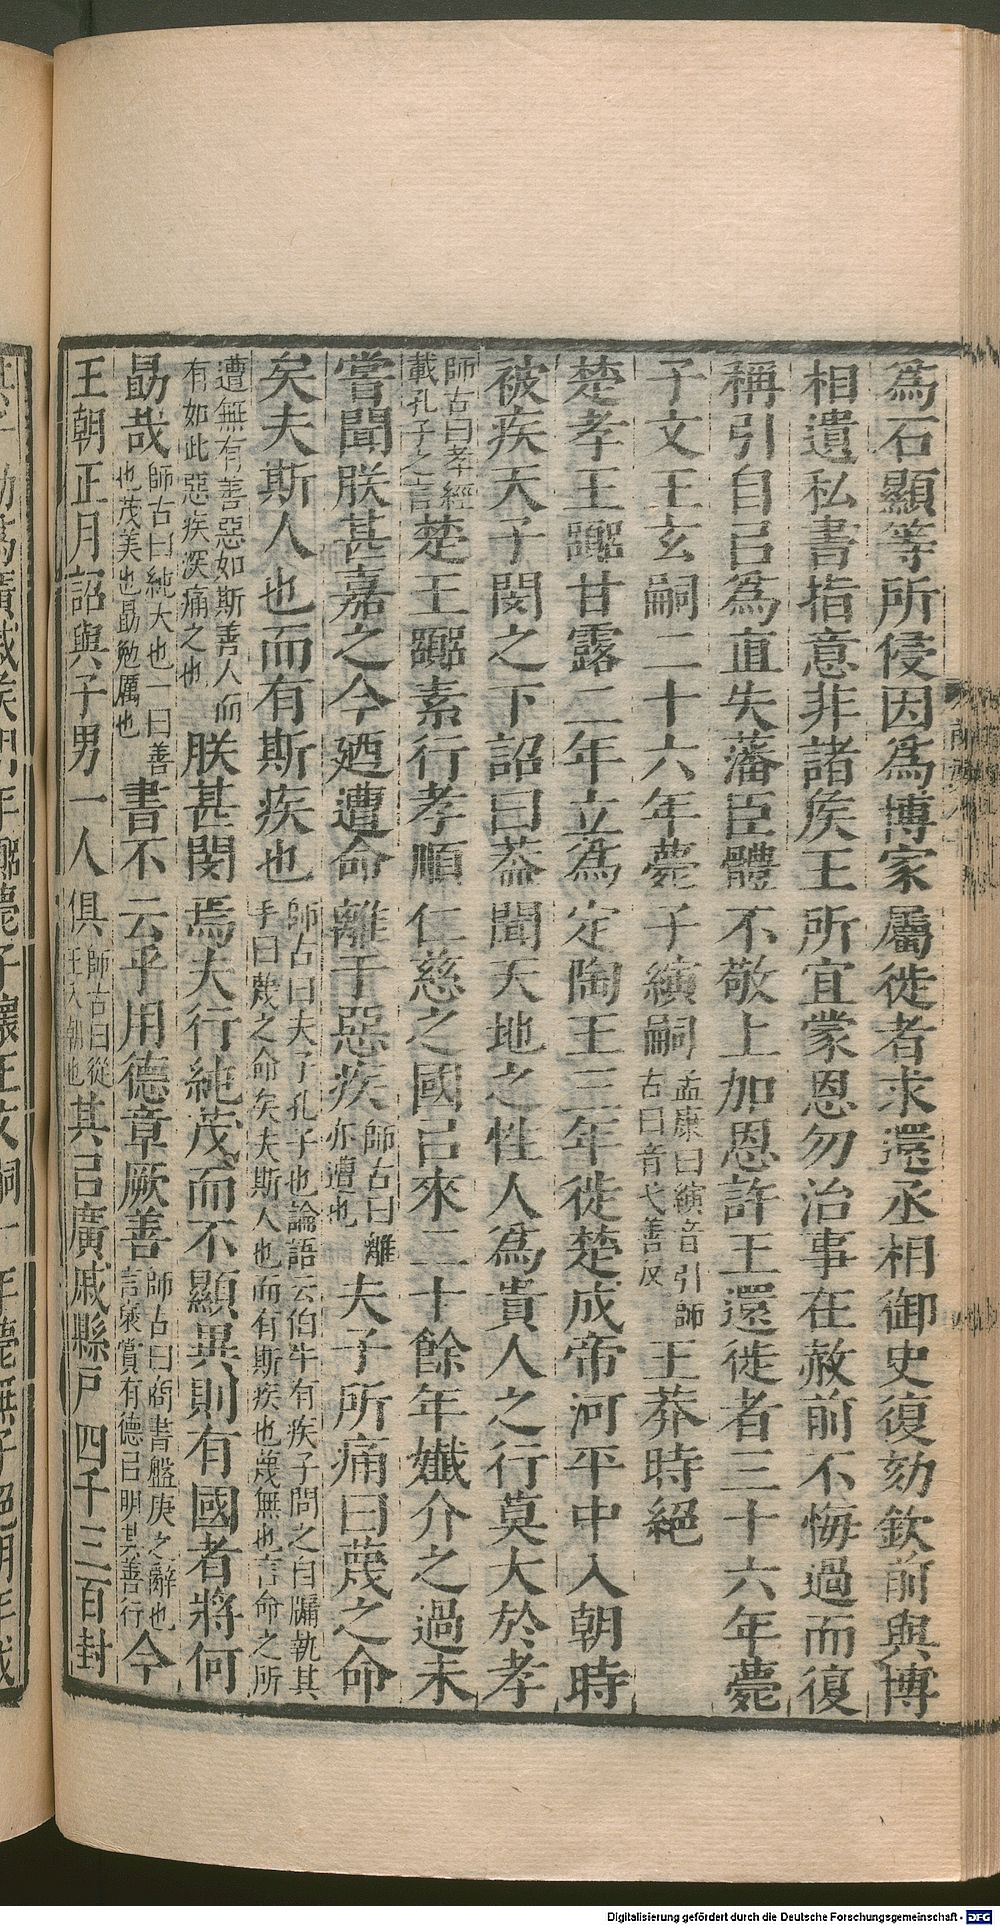 爲石顯等所侵因爲博家屬徙者求還丞相御史復劾欽前與博
相遺私書指意非諸矦王所宜蒙恩勿治事在赦前不悔過而復
稱引自㠯爲直失藩臣體不敬上加恩許王還徙者三十六年薨
子文王玄嗣二十六年薨子縯嗣孟康曰縯音引師古曰音弋善反王莽時絕
楚孝王嚻甘露二年立爲定陶王三年徙楚成帝河平中入朝時
被疾天子閔之下詔曰葢聞天地之性人爲貴人之行莫大於孝
師古曰孝經載孔子之言楚王嚻素行孝順仁慈之國㠯來二十餘年孅介之過未
嘗聞朕甚嘉之今廼遭命離于惡疾師古曰離亦遭也夫子所痛曰蔑之命
矣夫斯人也而有斯疾也師古曰夫子孔子也論語云伯牛有疾子問之自牖執其手曰蔑之命矣夫斯人也而有斯疾也蔑無也言命之所
遭無有善惡如斯善人而有如此惡疾深痛之也朕甚閔焉夫行純茂而不顯異則有國者將何
勗哉師古曰純大也一曰善也茂美也勗勉厲也書不云乎用德章厥善師古曰商書盤庚之辭也言襃賞有德㠯明其善行今
王朝正月詔與子男一人俱師古曰從王入朝也其㠯廣戚縣戶四千三百封
Digitalisierung gefördert durch die Deutsche Forschungsgemeinschaft - DFG